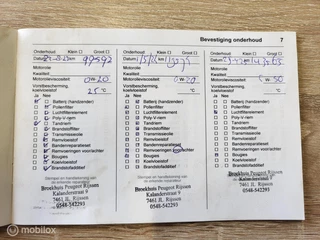 Bevestiging onderhoud 7
Onderhoud Klein ☐ Groot ☐
Datum
99592
Motorolie
Kwaliteit
Motorolieviscositeit 0W-20
Vorstbescherming, koelvloeistof 25 °C
Ja Nee
Batterij (handzender)
Pollenfilter
Luchtfilterelement
Poly V-riem
Tandriem
Brandstoffilter
Transmissieolie
Remvloeistof
Bandenreparatieset
Remvoeringen voor/achter
Bougies
Koelvloeistof
Brandstofadditief
Stempel en handtekening van
de erkende reparateur
Broekhuis Peugeot Rijssen
Kalanderstraat 9
7461 JL Rijssen
0548-542293
Onderhoud Klein ☐ Groot ☐
Datum km
Motorolie
Kwaliteit
Motorolieviscositeit
Vorstbescherming,
koelvloeistof °C
Ja Nee
Batterij (handzender)
Pollenfilter
Luchtfilterelement
Poly V-riem
Tandriem
Brandstoffilter
Transmissieolie
Remvloeistof
Bandenreparatieset
Remvoeringen voor/achter
Bougies
Koelvloeistof
Brandstofadditief
Stempel en handtekening van
Broekhuis Peugeot Rijssen
Kalanderstraat 9
7461 JL Rijssen
0548-542293
Onderhoud Klein ☐ Groot ☐
Datum
Motorolie
Kwaliteit
Motorolieviscositeit
Vorstbescherming,
koelvloeistof °C
Ja Nee
Batterij (handzender)
Pollenfilter
Luchtfilterelement
Poly V-riem
Tandriem
Brandstoffilter
Transmissieolie
Remvloeistof
Bandenreparatieset
Remvoeringen voor/achter
Bougies
Koelvloeistof
Brandstofadditief
Stempel en handtekening van
Broekhuis Peugeot Rijssen
Kalanderstraat 9
7461 JL Rijssen
0548-542293
mobilox